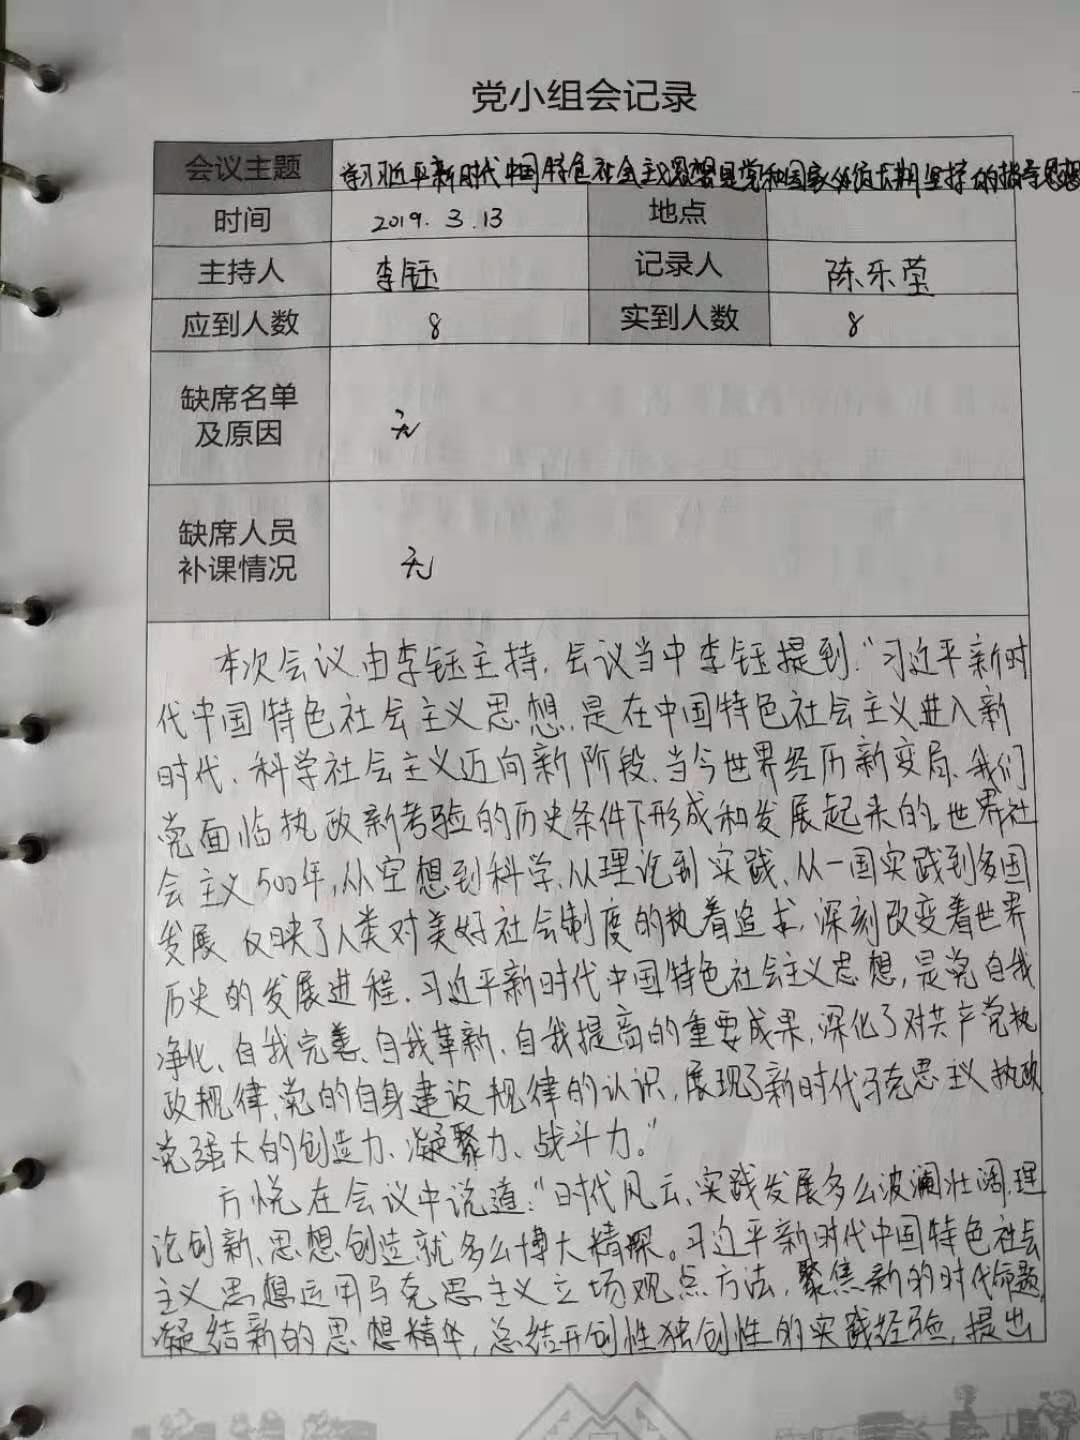 党小组会记录
会议主题 学习习近平新时代中国特色社会主义思想是党和国家必须长期坚持的指导思想
时间 2019.3.13 地点
主持人 李钰 记录人 陈乐莹
应到人数 8 实到人数 8
缺席名单
及原因 无
缺席人员
补课情况 无
本次会议由李钰主持,会议当中李钰提到:“习近平新时
代中国特色社会主义思想,是在中国特色社会主义进入新
时代、科学社会主义迈向新阶段、当今世界经历新变局、我们
党面临执政新考验的历史条件下形成和发展起来的。世界社
会主义500年,从空想到科学、从理论到实践、从一国实践到多国
发展,反映了人类对美好社会制度的执着追求,深刻改变着世界
历史的发展进程。习近平新时代中国特色社会主义思想,是党自我
净化、自我完善、自我革新、自我提高的重要成果,深化了对共产党执
政规律、党的自身建设规律的认识,展现了新时代马克思主义执政
党强大的创造力、凝聚力、战斗力。”
方悦在会议中说道:“时代风云、实践发展多么波澜壮阔,理
论创新、思想创造就多么博大精深。习近平新时代中国特色社会
主义思想运用马克思主义立场观点方法,聚焦新的时代命题,
凝结新的思想精华,总结开创性独创性的实践经验,提出